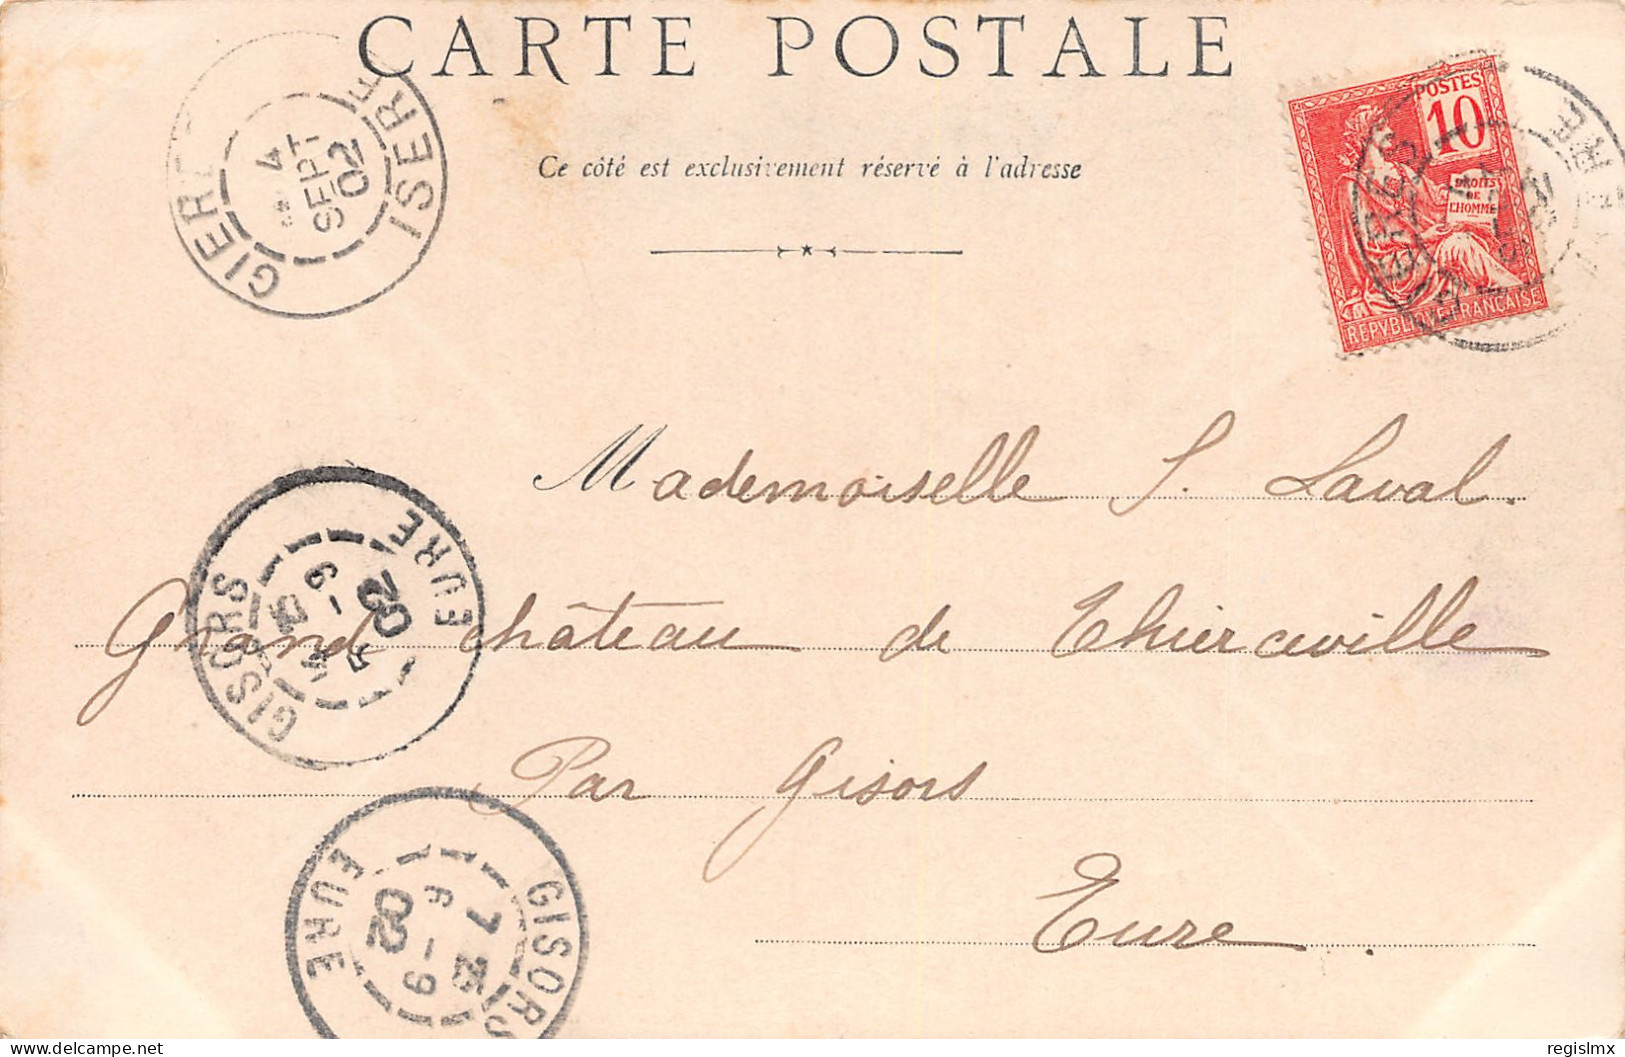 CARTE POSTALE
Ce côté est exclusivement réservé à l'adresse
ISERE
4
SEPT
02
POSTES
10
DROITS
DE
L'HOMME
REPVBLIQUE FRANÇAISE
Mademoiselle S. Laval.
Grand château de Thierceville
Par Gisors
Eure
GISORS
EURE
9
02
GISORS
EURE
7
9
02
regislmx